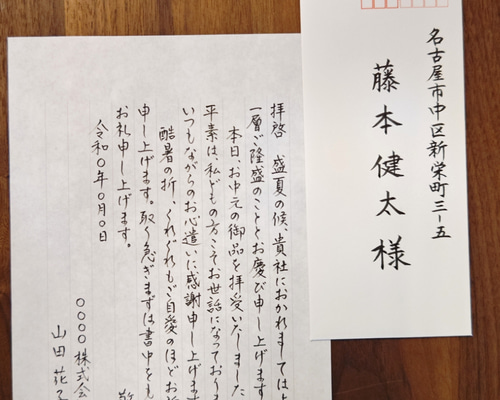 名古屋市中区新栄町三-五
藤本健太様
拝啓 盛夏の候、貴社におかれましては
一層ご隆盛のこととお慶び申し上げます
本日、お中元の御品を拝受いたしました
平素は、私どもの方こそお世話になってお
いつもながらのお心遣いに感謝申し上げます
酷暑の折、くれぐれもご自愛のほどお
申し上げます。取り急ぎまずは書中をも
お礼申し上げます。
令和〇年〇月〇日
〇〇〇〇株式会
山田花